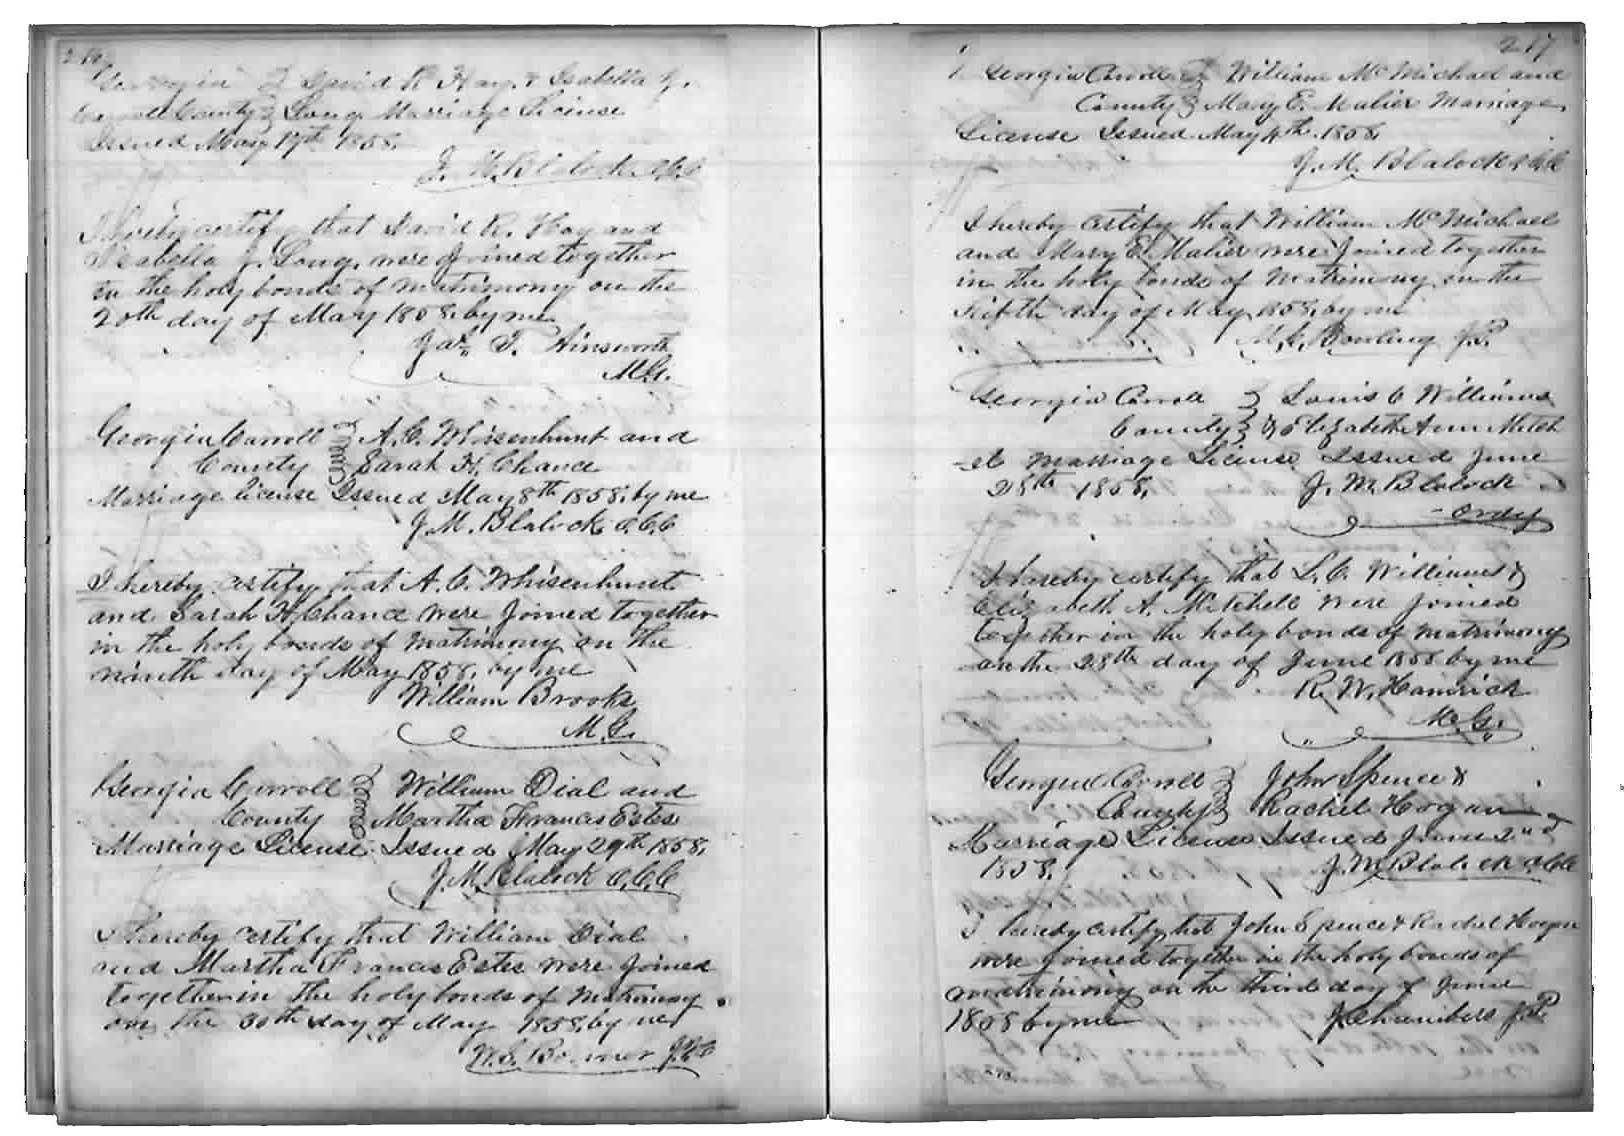 216
Georgia David R. Hay & Isabella J.
Carroll County Long Marriage License
Issued May 17th 1858.
J. M. Blalock C.C.O
I hereby certify that David R. Hay and
Isabella J. Long, were Joined together
in the holy bonds of matrimony on the
20th day of May 1858, by me
Jas. T. Ainsworth
M.G.
Georgia Carroll A. C. Whisenhunt and
County Sarah H. Chance
Marriage license Issued May 8th 1858, by me
J. M. Blalock C.C.O
I hereby certify that A. C. Whisenhunt
and Sarah H. Chance were Joined together
in the holy bonds of matrimony on the
ninth day of May 1858, by me
William Brooks
M.G.
Georgia Carroll William Dial and
County Martha Frances Estes
Marriage License Issued May 29th 1858,
J. M. Blalock C.C.O
I hereby certify that William Dial
and Martha Frances Estes were Joined
together in the holy bonds of matrimony
on the 30th day of May 1858, by me
W. S. J.P.
217
Georgia Carroll William McMichael and
County Mary E. Malier Marriage
License Issued May 4th 1858,
J. M. Blalock C.C.O
I hereby certify that William McMichael
and Mary E. Malier were Joined together
in the holy bonds of matrimony on the
Fifth day of May 1858, by me
M. C. Bowling J.P.
Georgia Carroll Louis C Williams
County & Elizabeth Ann Mitch
-el Marriage License Issued June
28th 1858, J. M. Blalock
Ordy
I hereby certify that L. C. Williams &
Elizabeth A. Mitchell were Joined
together in the holy bonds of matrimony
on the 28th day of June 1858 by me
R. W. Hamrick
M.G.
Georgia Carroll John Spence &
County Rachel Hogan
Marriage License Issued June 2nd
1858, J. M. Blalock C.C.O
I hereby certify that John Spence & Rachel Hogan
were Joined together in the holy bonds of
matrimony on the third day of June
1858 by me J. Chambers J.P.